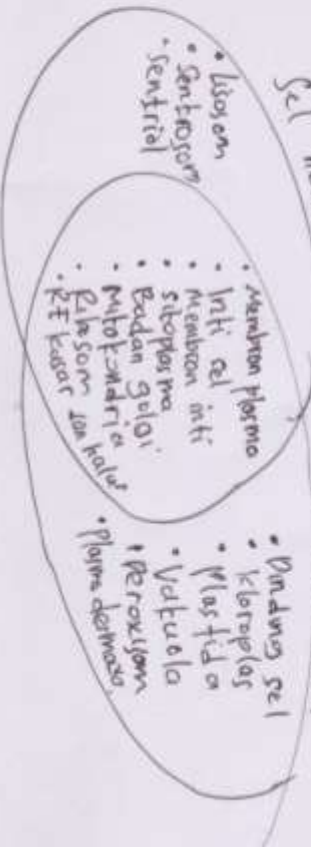 Sel
• Lisosom
• Sentrosom
• Sentriol
• Membran plasma
• Inti sel
• Membran inti
• sitoplasma
• Badan golgi
• Mitokondria
• Ribosom
• RE kasar dan halus
• Dinding sel
• kloroplas
• Plastida
• Vakuola
• Peroxisom
• Plasmodermata